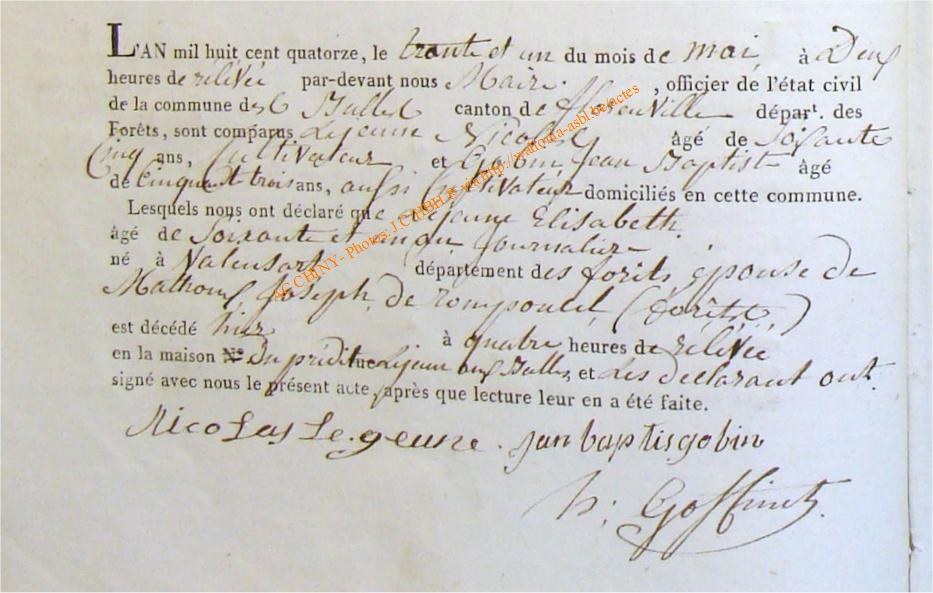 L'AN mil huit cent quatorze, le trante et un du mois de mai, à Deux
heures de rélévée par-devant nous Maire, officier de l'état civil
de la commune des Bulles canton de Florenville départ. des
Forêts, sont comparus Lejeune Nicolas âgé de Soisante
Cinq ans, Cultivateur et Gobin Jean Baptist âgé
de Cinquant trois ans, aussi Cultivateur domiciliés en cette commune.
Lesquels nous ont déclaré que Lejeune Elisabeth
âgé de Soixante et un journalier
né à Valensart département des forêts, épouse de
Joseph, de (forêts,)
est décédé hier à quatre heures de rélévée
en la maison N.° Du prédit Lejeune Bulles, et Les declarant ont
signé avec nous le présent acte, après que lecture leur en a été faite.
Nicolas Legeune. jan baptis gobin
h: Goffinet
AC CHINY - Photos: J.C. - via http://grafioma-asbl.be/actes